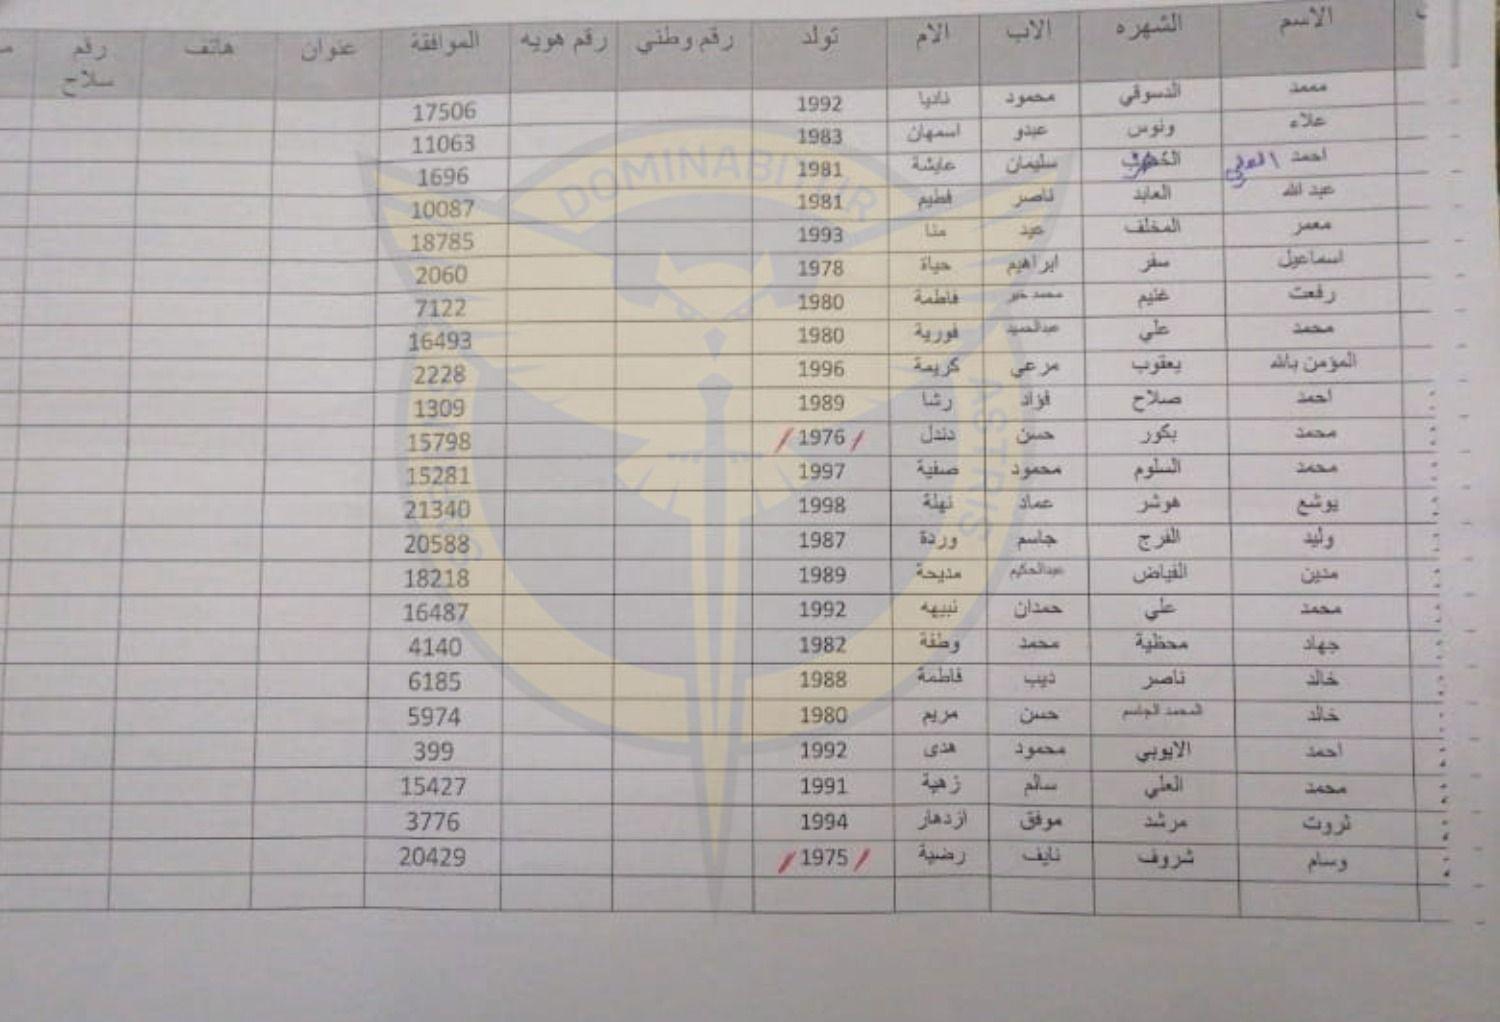 الاسم الشهره الاب الام تولد رقم وطني رقم هويه الموافقة عنوان هاتف رقم سلاح
محمد الدسوقي محمود ناديا 1992 17506
علاء ونوس عبدو اسمهان 1983 11063
احمد العلي سليمان عايشة 1981 1696
عبد الله العابد ناصر فطيم 1981 10087
معمر المخلف عيد منا 1993 18785
اسماعيل سفر ابراهيم حياة 1978 2060
رفعت غنيم محمد خير فاطمة 1980 7122
محمد علي عبدالحميد فورية 1980 16493
المؤمن بالله يعقوب مرعي كريمة 1996 2228
احمد صلاح فؤاد رشا 1989 1309
محمد بكور حسن دندل 1976 15798
محمد السلوم محمود صفية 1997 15281
يوشع هوشر عماد نهلة 1998 21340
وليد الفرج جاسم وردة 1987 20588
مدين الفياض عبدالحكيم مديحة 1989 18218
محمد علي حمدان نبيهه 1992 16487
جهاد محظية محمد وطفة 1982 4140
خالد ناصر ديب فاطمة 1988 6185
خالد المحمد الجاسم حسن مريم 1980 5974
احمد الايوبي محمود هدى 1992 399
محمد العلي سالم زهية 1991 15427
ثروت مرشد موفق ازدهار 1994 3776
وسام شروف نايف رضية 1975 20429
DOMINABITUR
ASTRIS